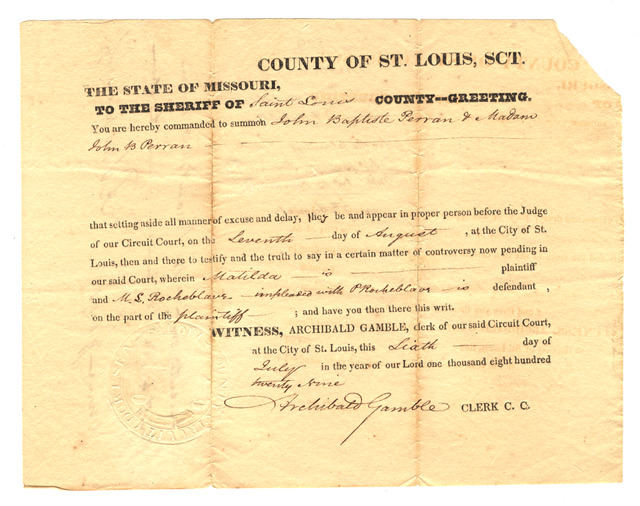 COUNTY OF ST. LOUIS, SCT.
THE STATE OF MISSOURI,
TO THE SHERIFF OF Saint Louis COUNTY--GREETING.
You are hereby commanded to summon John Baptiste Perran & Madam
John B Perran
that setting aside all manner of excuse and delay, they be and appear in proper person before the Judge
of our Circuit Court, on the Seventh day of August, at the City of St.
Louis, then and there to testify and the truth to say in a certain matter of controversy now pending in
our said Court, wherein Matilda — is — plaintiff
and M. L. Rocheblave — impleaded with P Rocheblave — is defendant,
on the part of the plaintiff — ; and have you then there this writ.
WITNESS, ARCHIBALD GAMBLE, clerk of our said Circuit Court,
at the City of St. Louis, this Sixth — day of
July in the year of our Lord one thousand eight hundred
twenty Nine
Archibald Gamble CLERK C. C.